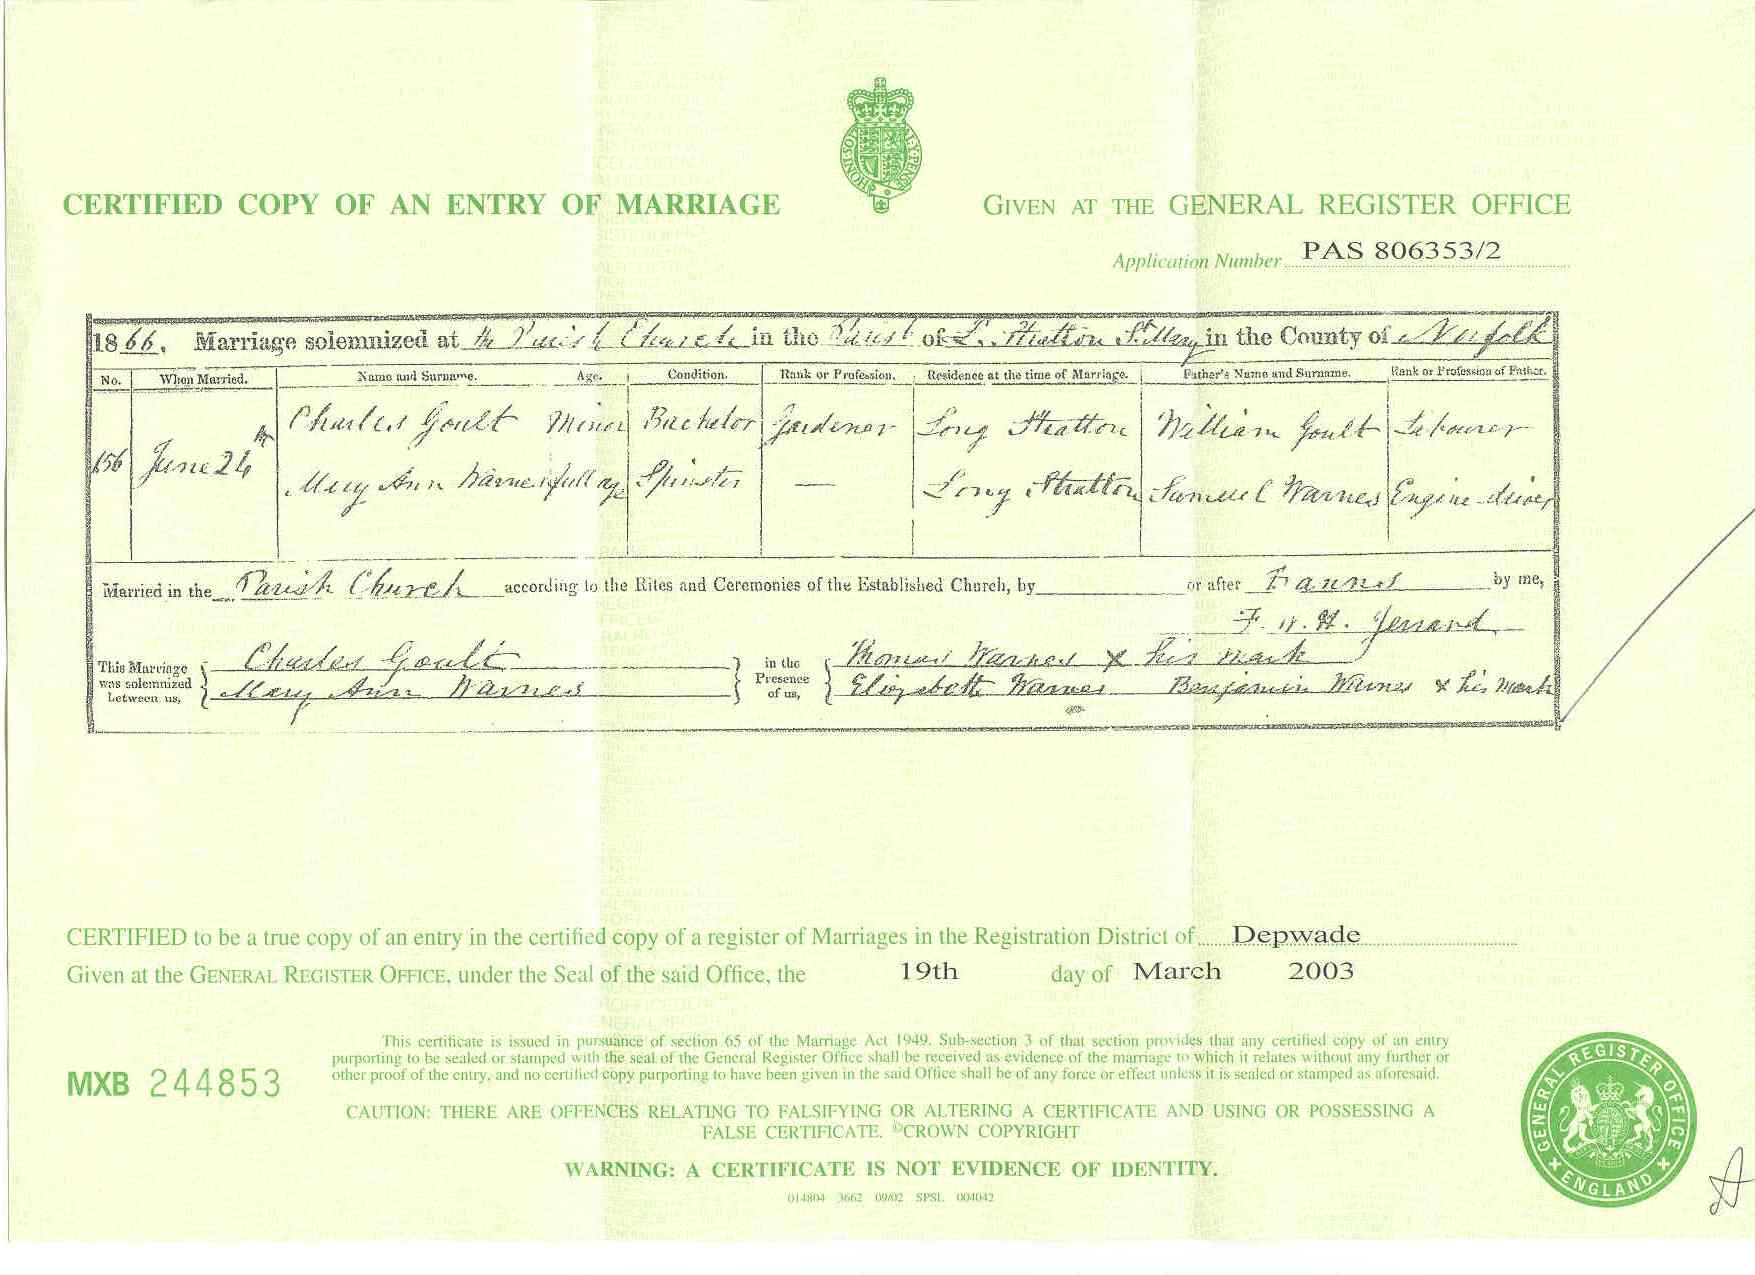 CERTIFIED COPY OF AN ENTRY OF MARRIAGE
GIVEN AT THE GENERAL REGISTER OFFICE
Application Number PAS 806353/2
1866. Marriage solemnized at the Parish Church in the Parish of L. Stratton St. Mary in the County of Norfolk
No. When Married. Name and Surname. Age. Condition. Rank or Profession. Residence at the time of Marriage. Father's Name and Surname. Rank or Profession of Father.
156 June Charles Goult Minor Bachelor Gardener Long Stratton William Goult Labourer
Mary Ann Warnes full age Spinster — Long Stratton Samuel Warnes Engine driver
Married in the Parish Church according to the Rites and Ceremonies of the Established Church, by or after Banns by me,
F. W. H. Jerrard
This Marriage was solemnized between us, Charles Goult
Mary Ann Warnes
in the Presence of us, Thomas Warnes x his mark
Elizabeth Warnes Benjamin Warnes x his mark
CERTIFIED to be a true copy of an entry in the certified copy of a register of Marriages in the Registration District of Depwade
Given at the GENERAL REGISTER OFFICE, under the Seal of the said Office, the 19th day of March 2003
This certificate is issued in pursuance of section 65 of the Marriage Act 1949. Sub-section 3 of that section provides that any certified copy of an entry
purporting to be sealed or stamped with the seal of the General Register Office shall be received as evidence of the marriage to which it relates without any further or
other proof of the entry, and no certified copy purporting to have been given in the said Office shall be of any force or effect unless it is sealed or stamped as aforesaid.
MXB 244853
CAUTION: THERE ARE OFFENCES RELATING TO FALSIFYING OR ALTERING A CERTIFICATE AND USING OR POSSESSING A
FALSE CERTIFICATE. ©CROWN COPYRIGHT
WARNING: A CERTIFICATE IS NOT EVIDENCE OF IDENTITY.
014804 3662 09/02 SPSL 004042
GENERAL REGISTER OFFICE
ENGLAND